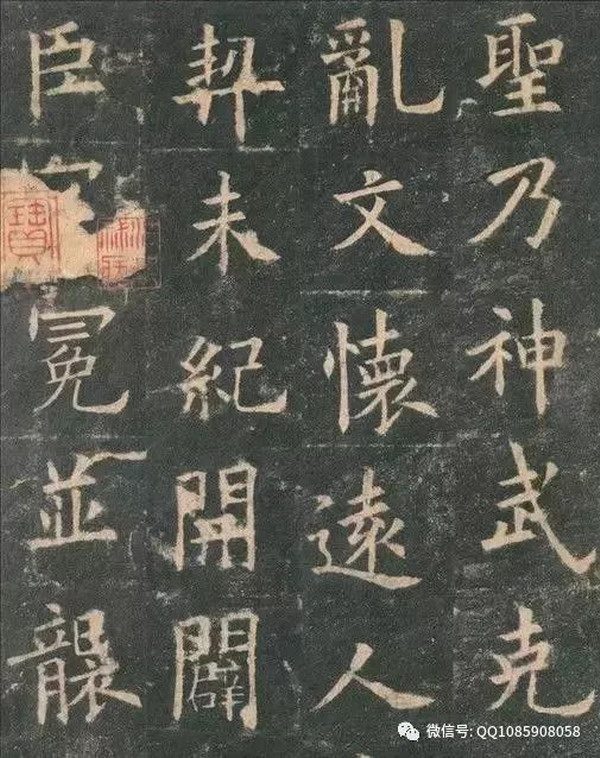 聖乃神武克
亂文懷遠人
契未紀開闢
臣冕並襲
微信号: QQ1085908058